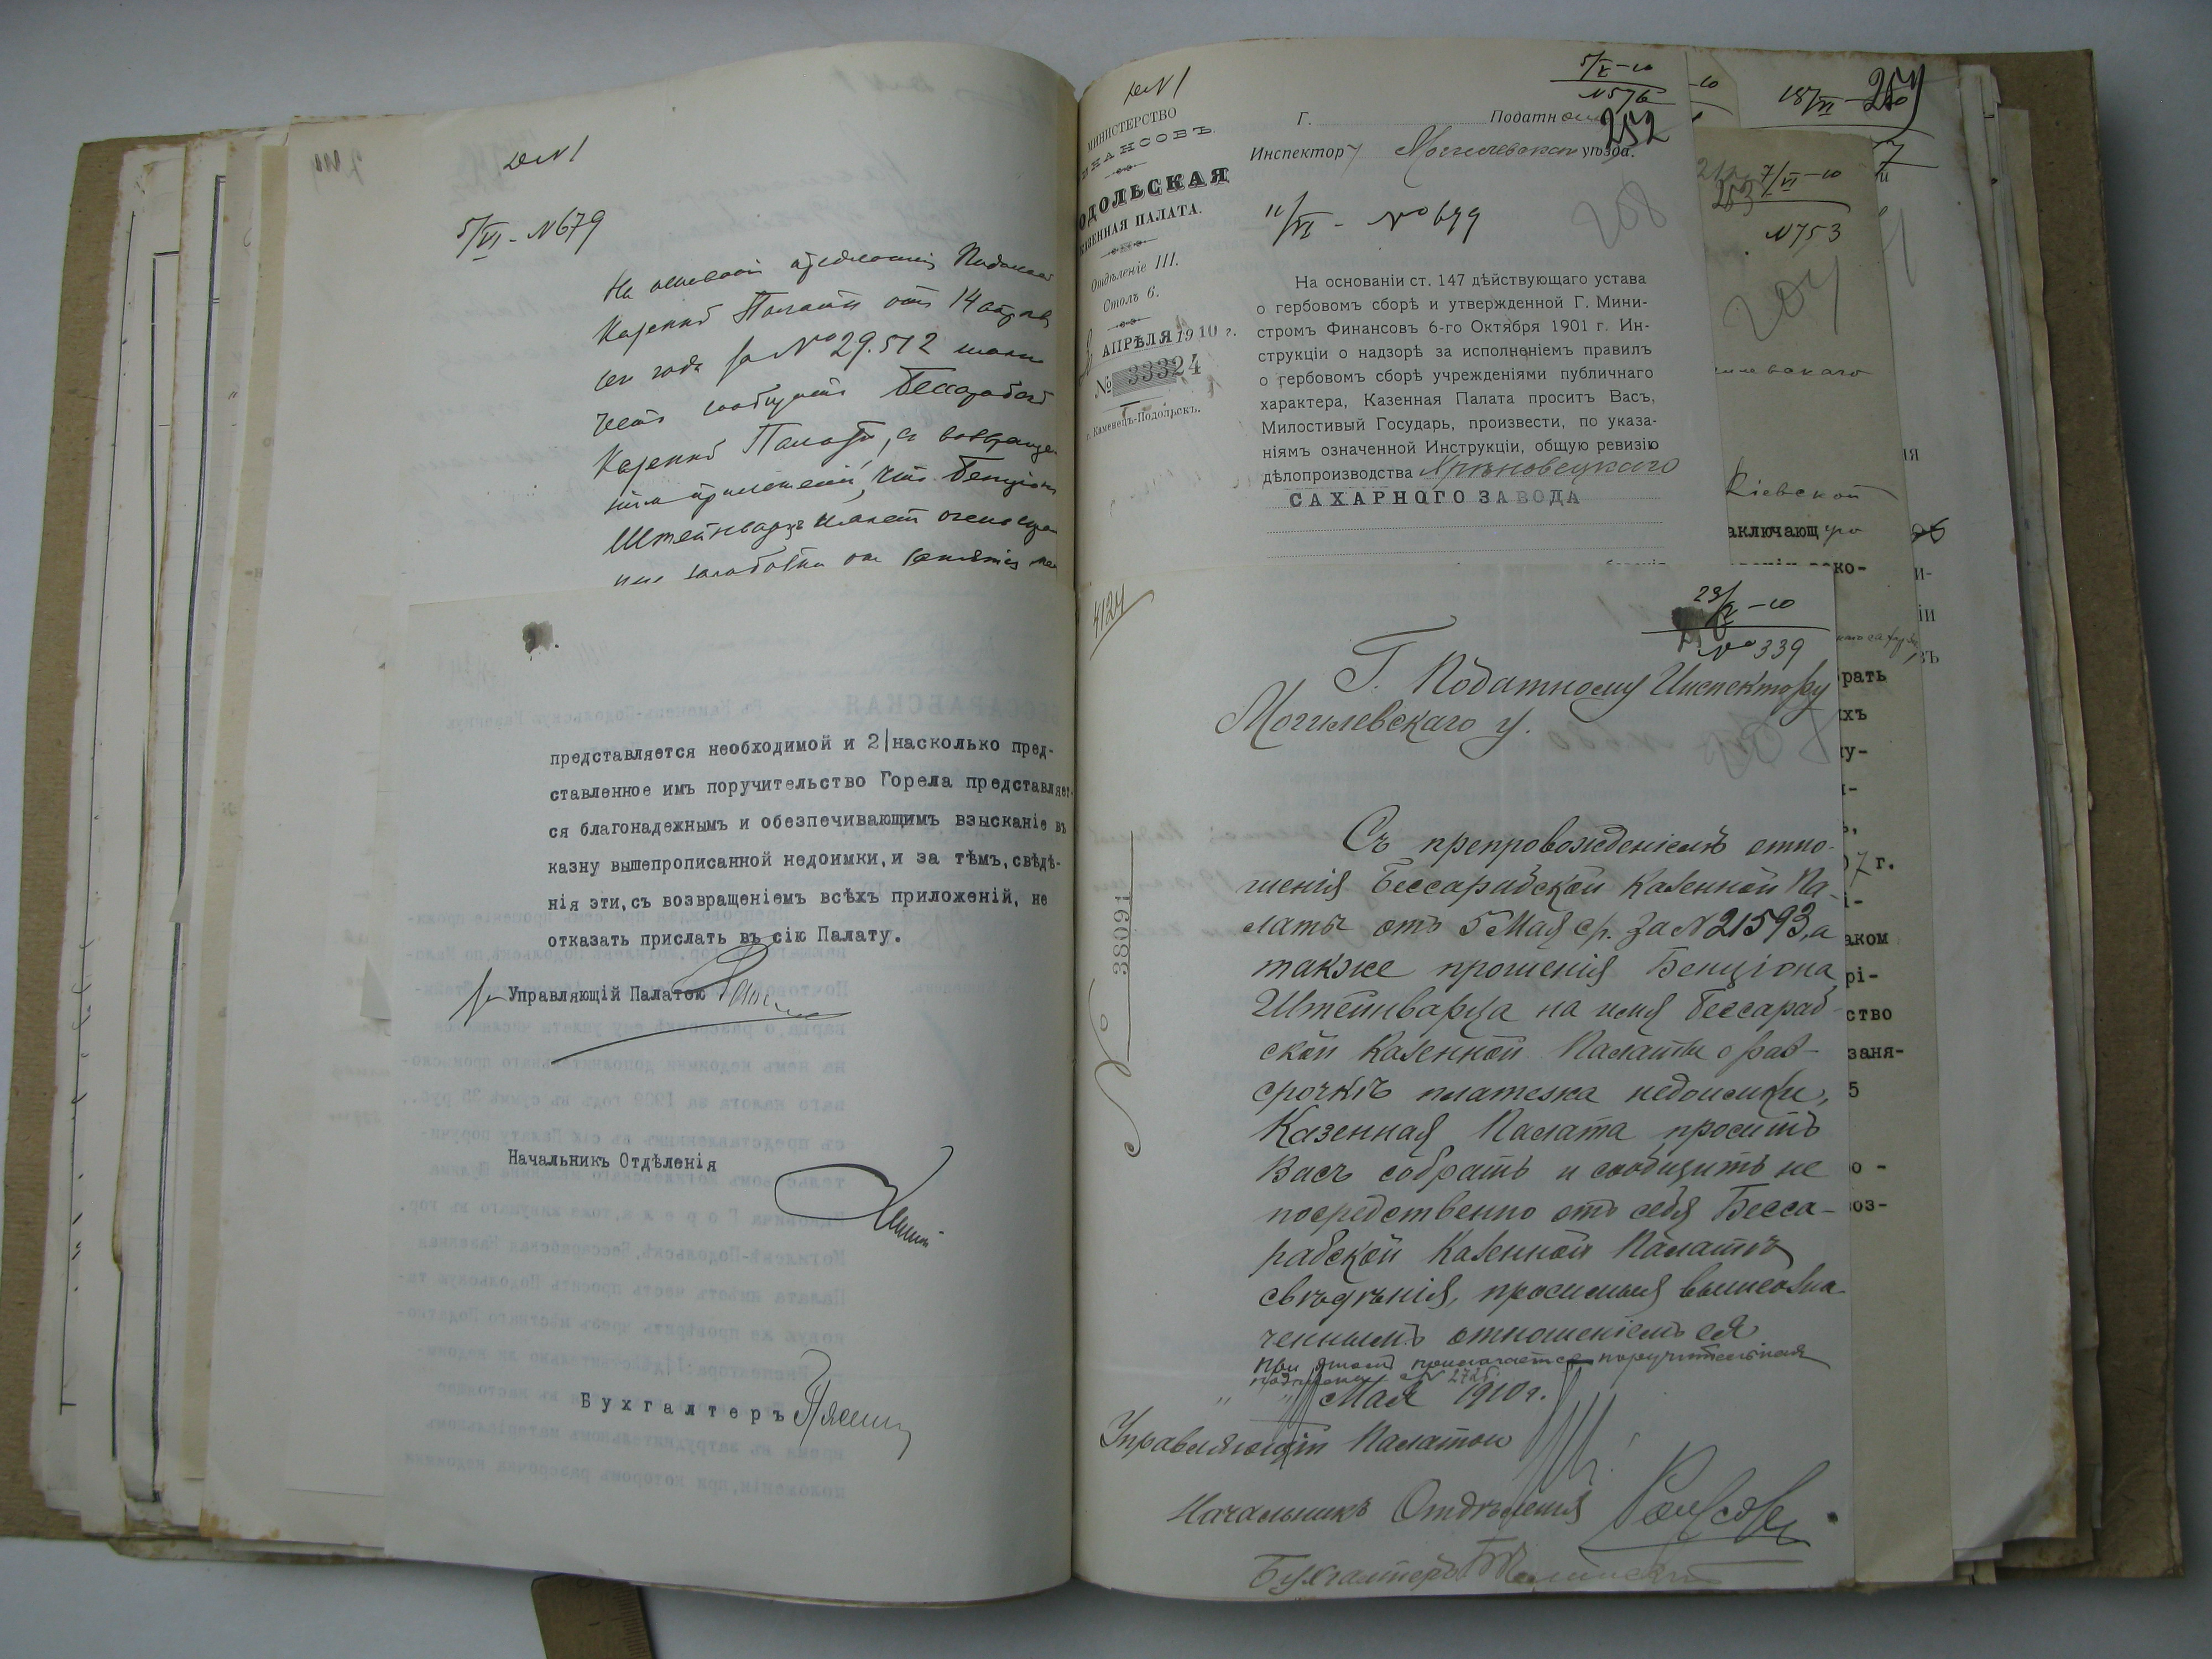 5/VI - №679
На основаніи предложенія Подольской
Казенной Палаты отъ 14
сего года за №29.512 имѣю
честь сообщить Бессарабской
Казенной Палатѣ, съ возвраще-
ніемъ приложеній, что Бенціонъ
Штейнварцъ имѣетъ очень
заработки отъ занятія
представляется необходимой и 2|насколько пред-
ставленное имъ поручительство Горела представляет-
ся благонадежнымъ и обезпечивающимъ взысканіе въ
казну вышепрописанной недоимки,и за тѣмъ,свѣдѣ-
нія эти,съ возвращеніемъ всѣхъ приложеній, не
отказать прислать въ сію Палату.
Управляющій Палатою
Начальникъ Отдѣленія
Бухгалтеръ
МИНИСТЕРСТВО
ИНАНСОВЪ.
ОДОЛЬСКАЯ
КАЗЕННАЯ ПАЛАТА.
Отдѣленіе III.
Столъ 6.
АПРѢЛЯ 1910 г.
№ 33324
г. Каменецъ-Подольскъ.
5/V-10
№576
252
Г. Податному
Инспектору Могилевскаго уѣзда.
11/VI - №699
208
На основаніи ст. 147 дѣйствующаго устава
о гербовомъ сборѣ и утвержденной Г. Мини-
стромъ Финансовъ 6-го Октября 1901 г. Ин-
струкціи о надзорѣ за исполненіемъ правилъ
о гербовомъ сборѣ учрежденіями публичнаго
характера, Казенная Палата проситъ Васъ,
Милостивый Государь, произвести, по указа-
ніямъ означенной Инструкціи, общую ревизію
дѣлопроизводства Яроновецкаго
САХАРНОГО ЗАВОДА
4124
№ 38091
23/V-10
№339
Г. Податному Инспектору
Могилевскаго у.
Съ препровожденіемъ отно-
шенія Бессарабской Казенной Па-
латы отъ 5 Мая с/г. за №21593, а
также прошенія Бенціона
Штейнварца на имя Бессараб-
ской Казенной Палаты о раз-
срочкѣ платежа недоимки,
Казенная Палата проситъ
Васъ собрать и сообщить не
посредственно отъ себя Бесса-
рабской Казенной Палатѣ
свѣдѣнія, просимыя вышеозна-
ченнымъ отношеніемъ ея
При этомъ прилагается поручительная
подписка №2726
" " Мая 1910 г.
Управляющій Палатою
Начальникъ Отдѣленія
Бухгалтеръ
18/VI
7/VI-10
№753
204
Кіевской
аключающ
ко-
рать
ихъ
у-
7 г.
аком
рі-
ство
заня-
5
о-
оз-